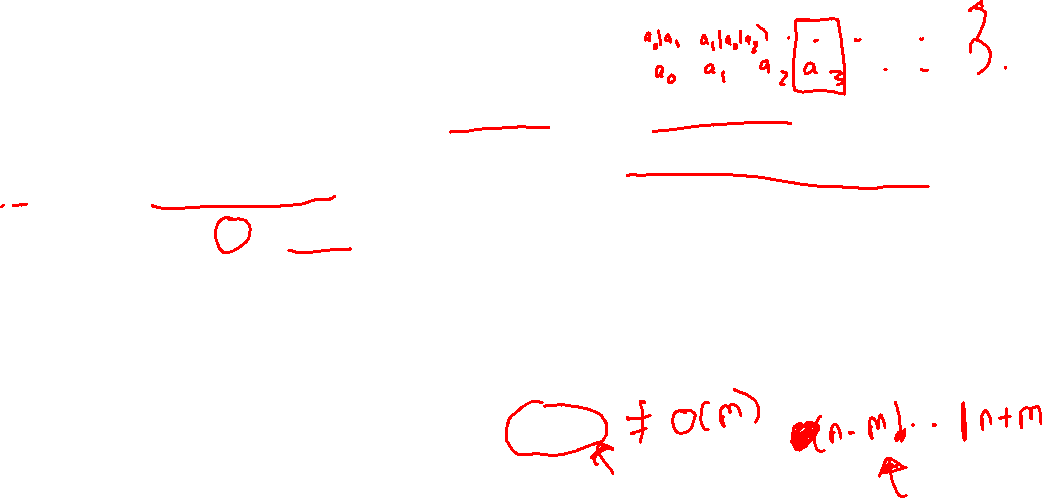 a₀|a₁ a₁|a₀|a₂) . . . . : }.
a₀ a₁ a₂ a₃ . . _
O
≠ O(m) (n-m|... |n+m